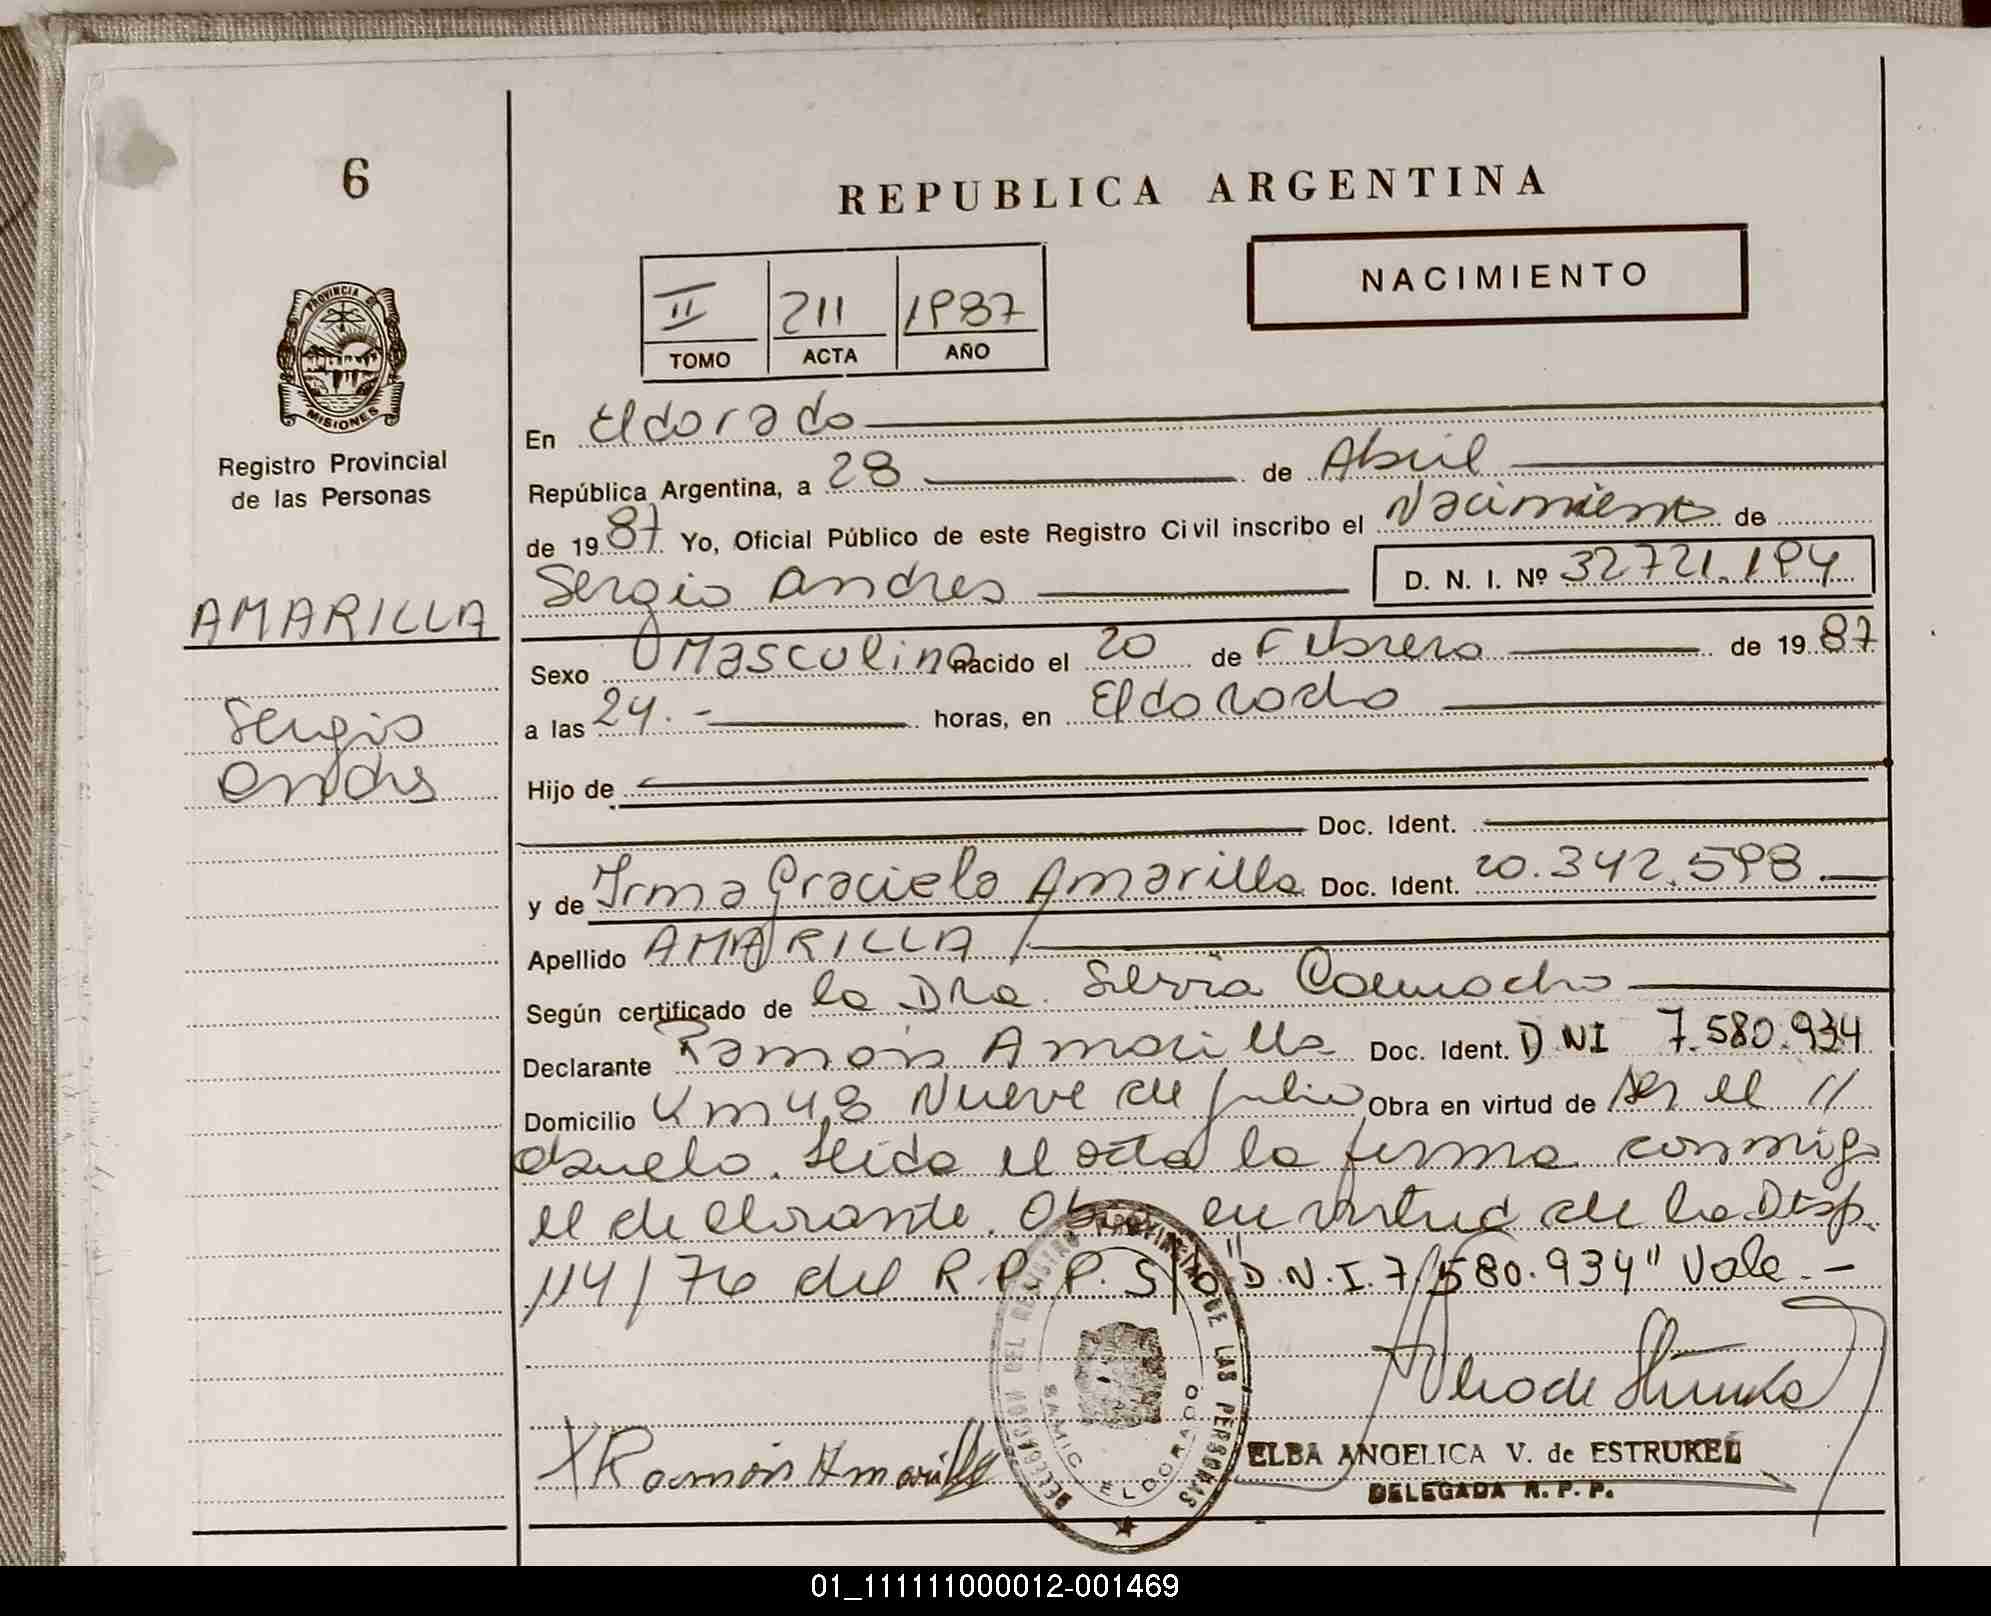 6
REPUBLICA ARGENTINA
NACIMIENTO
II 211 1987
TOMO ACTA AÑO
PROVINCIA DE
MISIONES
Registro Provincial
de las Personas
AMARILLA
Sergio
Andres
En Eldorado
República Argentina, a 28 de Abril
de 1987 Yo, Oficial Público de este Registro Civil inscribo el Nacimiento de
Sergio Andres D. N. I. Nº 32721.194
Sexo Masculino nacido el 20 de Febrero de 1987
a las 24.- horas, en Eldorado
Hijo de
Doc. Ident.
y de Irma Graciela Amarilla Doc. Ident. 20.342.598
Apellido AMARILLA
Según certificado de la Dra. Silvia Camacho
Declarante Ramón Amarilla Doc. Ident. DNI 7.580.934
Domicilio Km 48 Nueve de Julio Obra en virtud de ser el //
abuelo. Leida el acta la firma conmigo
el declarante. Obra en virtud de la Disp.
114/76 del R.P.P. S/b "D.N.I. 7.580.934" Vale.-
DELEGACION DEL REGISTRO PROVINCIAL DE LAS PERSONAS
SAMIC ELDORADO
X Ramón Amarilla
ELBA ANGELICA V. de ESTRUKEL
DELEGADA R. P. P.
01_111111000012-001469